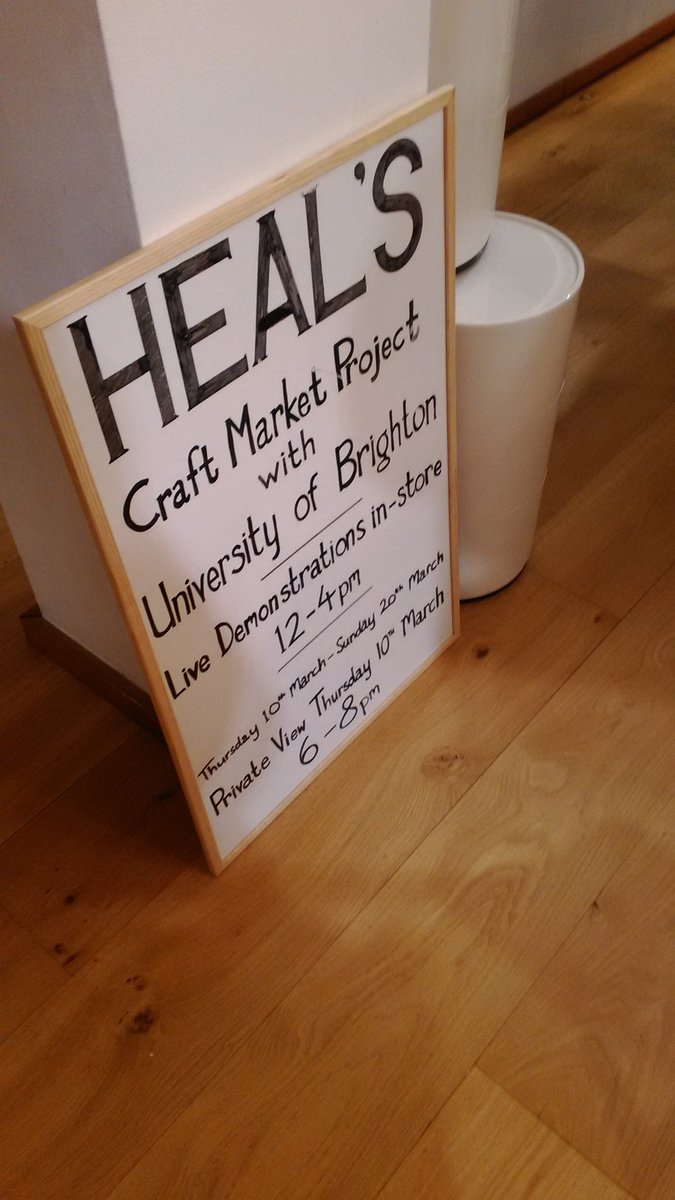 HEAL'S
Craft Market Project
with
University of Brighton
Live Demonstrations in-store
12-4pm
Thursday 10th March - Sunday 20th March
Private View Thursday 10th March
6-8pm